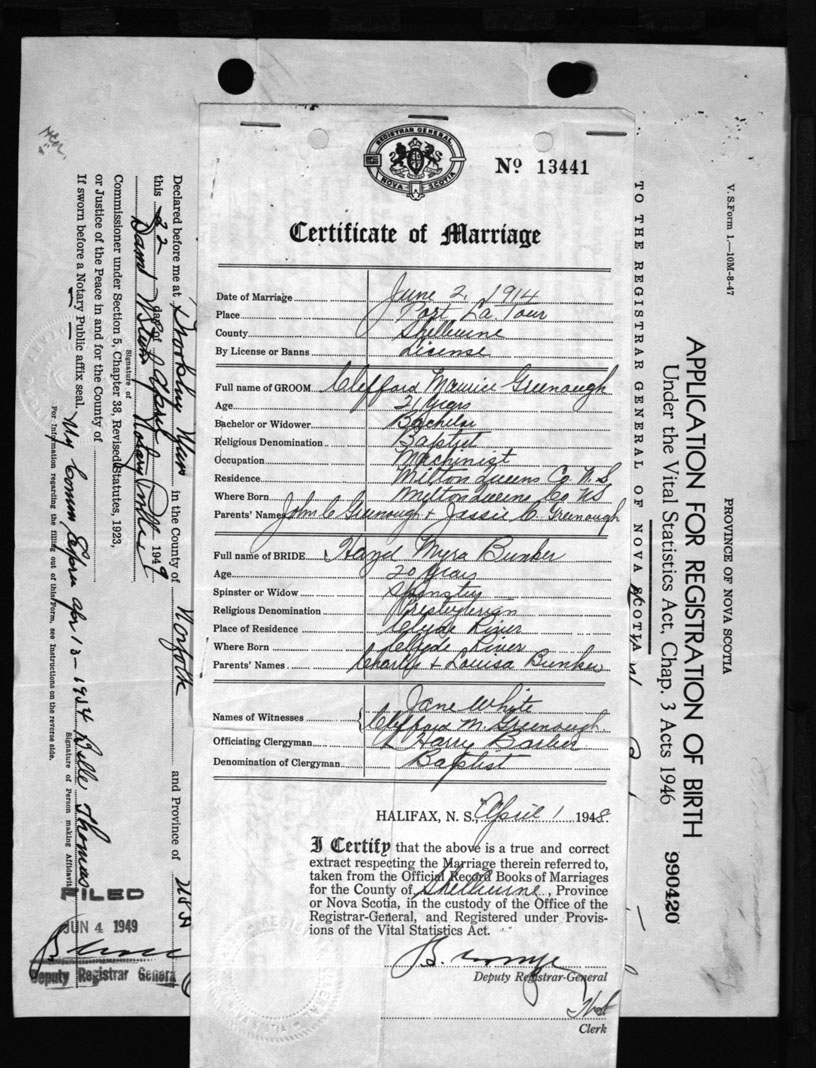 REGISTRAR GENERAL
NOVA SCOTIA
Nº 13441
Certificate of Marriage
Date of Marriage June 2, 1914
Place Port La Tour
County Shelburne
By License or Banns License
Full name of GROOM Clifford Maurice Greenough
Age 21 years
Bachelor or Widower Bachelor
Religious Denomination Baptist
Occupation Machinist
Residence Milton Queens Co N.S.
Where Born Milton Queens Co NS
Parents' Names John C Greenough + Jessie C. Greenough
Full name of BRIDE Hazel Myra Bunker
Age 20 years
Spinster or Widow Spinster
Religious Denomination Presbyterian
Place of Residence Clyde River
Where Born Clyde River
Parents' Names Charles + Louisa Bunker
Names of Witnesses Jane White
Clifford M. Greenough
Officiating Clergyman Harry
Denomination of Clergyman Baptist
HALIFAX, N. S., April 1 1948.
I Certify that the above is a true and correct
extract respecting the Marriage therein referred to,
taken from the Official Record Books of Marriages
for the County of Shelburne, Province
or Nova Scotia, in the custody of the Office of the
Registrar-General, and Registered under Provis-
ions of the Vital Statistics Act.
Deputy Registrar-General
Clerk
V. S. Form 1.—10M-8-47
PROVINCE OF NOVA SCOTIA
APPLICATION FOR REGISTRATION OF BIRTH
Under the Vital Statistics Act, Chap. 3 Acts 1946
990420
TO THE REGISTRAR GENERAL OF NOVA SCOTIA
Declared before me at in the County of Norfolk and Province of
this 22 day of April 1949
Signature of
Notary Public
Commissioner under Section 5, Chapter 38, Revised Statutes, 1923,
or Justice of the Peace in and for the County of
If sworn before a Notary Public affix seal. My Comm Expires Apr 13-1954 Belle Thomas
Signature of Person making Affidavit
For information regarding the filling out of this Form, see Instructions on the reverse side.
FILED
JUN 4 1949
Deputy Registrar General